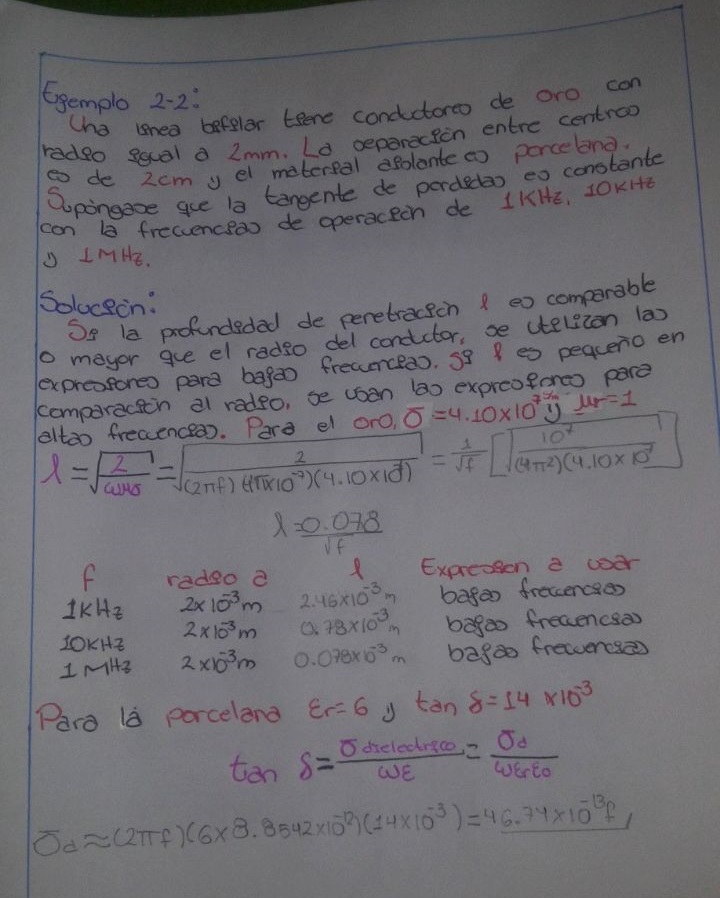 Ejemplo 2-2:
Una linea bifilar tiene conductores de oro con
radio igual a 2mm. La separación entre centros
es de 2cm y el material aislante es porcelana.
Supóngase que la tangente de perdidas es constante
con la frecuencias de operación de 1KHz, 10KHz
y 1MHz.
Solución:
Si la profundidad de penetración l es comparable
o mayor que el radio del conductor, se utilizan las
expresiones para bajas frecuencias. Si l es pequeño en
comparación al radio, se usan las expresiones para
altas frecuencias. Para el oro, σ = 4.10x10⁷ y μr = 1
l = √(2/ωμσ) = √(2/(2πf)(4πx10⁻⁷)(4.10x10⁷)) = 1/√f [√(10⁷/(4π²)(4.10x10⁷))]
l = 0.078/√f
f radio a l Expresion a usar
1KHz 2x10⁻³m 2.46x10⁻³m bajas frecuencias
10KHz 2x10⁻³m 0.78x10⁻³m bajas frecuencias
1MHz 2x10⁻³m 0.078x10⁻³m bajas frecuencias
Para la porcelana εr = 6 y tan δ = 14 x10⁻³
tan δ = σdielectrico/ωε = σd/ωεrεo
σd ≈ (2πf)(6x8.8542x10⁻¹²)(14x10⁻³) = 46.74x10⁻¹³f